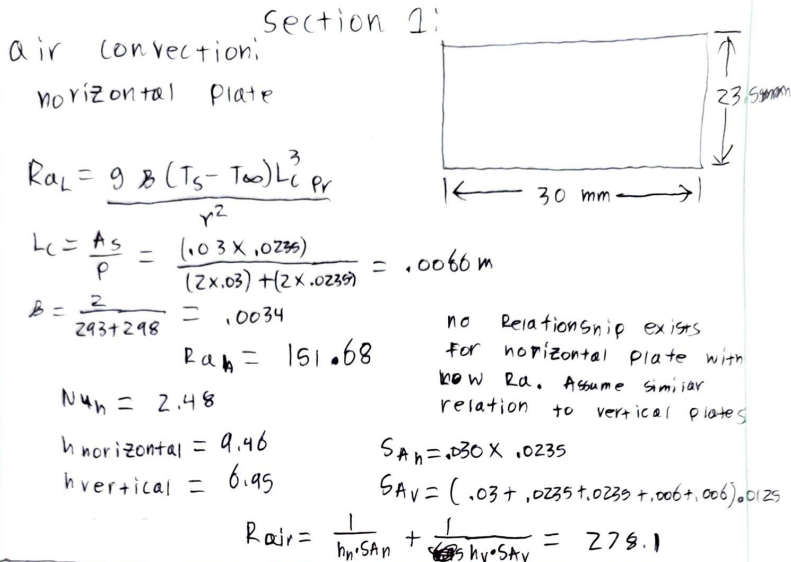 Section 1:
air convection:
horizontal plate
23.5mm
30 mm
Ra_L = g B (T_s - T∞) L_c^3 Pr / r^2
L_c = A_s / P = (.03 × .0235) / ((2×.03) + (2×.0235)) = .0066 m
B = 2 / (293+298) = .0034
Ra_h = 151.68
no Relationship exists
for horizontal plate with
low Ra. Assume similar
relation to vertical plates
Nu_h = 2.48
h horizontal = 9.46
h vertical = 6.95
SA_h = .030 × .0235
SA_v = (.03 + .0235 + .0235 + .006 + .006) .0125
R air = 1 / (h_h · SA_h) + 1 / (h_v · SA_v) = 278.1